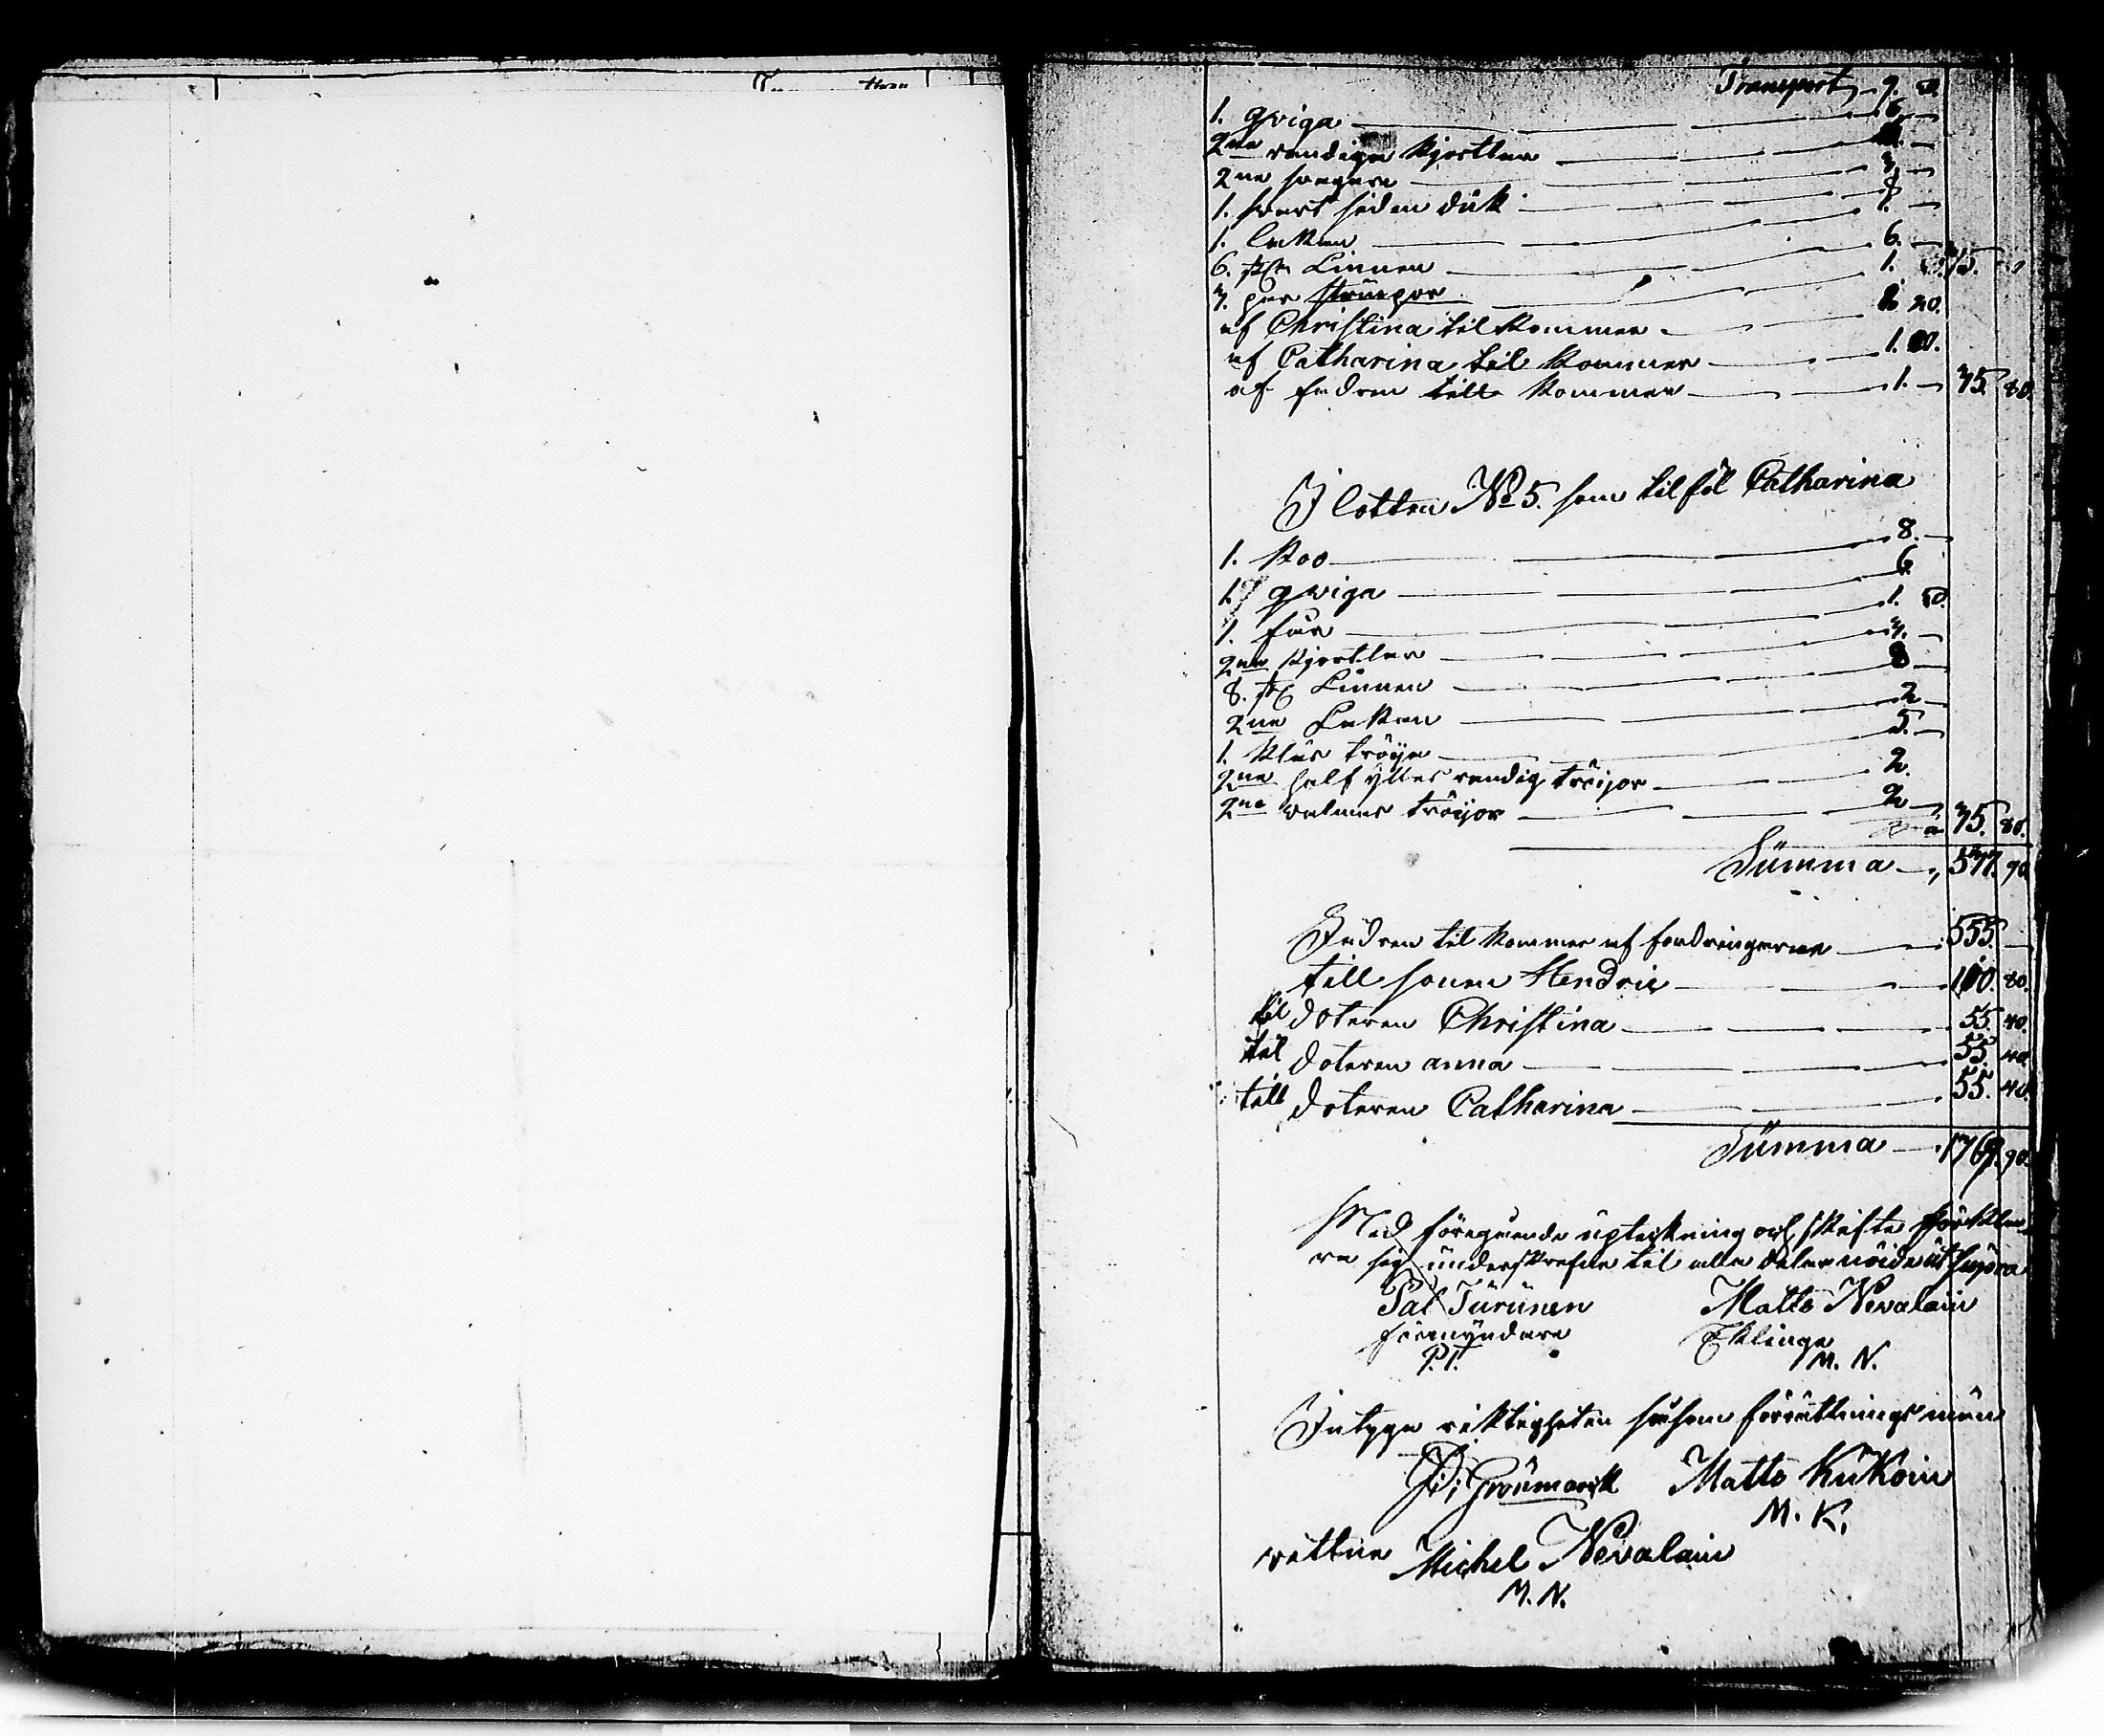 Transport 9. 50.
1. qviga 6.
2ne randiga kjortlar
2ne särkar 3.
1. svart siden duk
1. lakan 1.
6. st: Linnen 6.
3. par strümpor 1. 35.
af Christina til kommer 20.
af Catharina til kommer 1.
af fadren till kommer 1. 35. 80.
I lotten No 5. som til föl Catharina
1. Koo 8.
1. qviga 6.
1. får 1. 50.
2ne kjortlar 3.
8. st Linnen 8
2ne Lakan 2
1. Kläs tröya 5.
2ne half ylles randig tröijor 2.
2ne valmar tröijor 2 35. 80.
Summa 577. 90.
Fadren til kommer af fordringarne 555.
till sonen Hendric 110. 80.
til doteren Christina 55. 40.
til doteren anna 55. 40.
till doteren Catharina 55. 40.
Summa 1769. 90.
Med föregående upteckning och skifte förkla-
ra sig underskrefne til alla delar nöide
Pål Turunen Matts Nevalain
förmyndare
P.T. M. N.
Intyga riktigheten såsom förrättnings män
Grönmarck Matts Kukoin
M. K.
vittne Michel Nevalain
M. N.